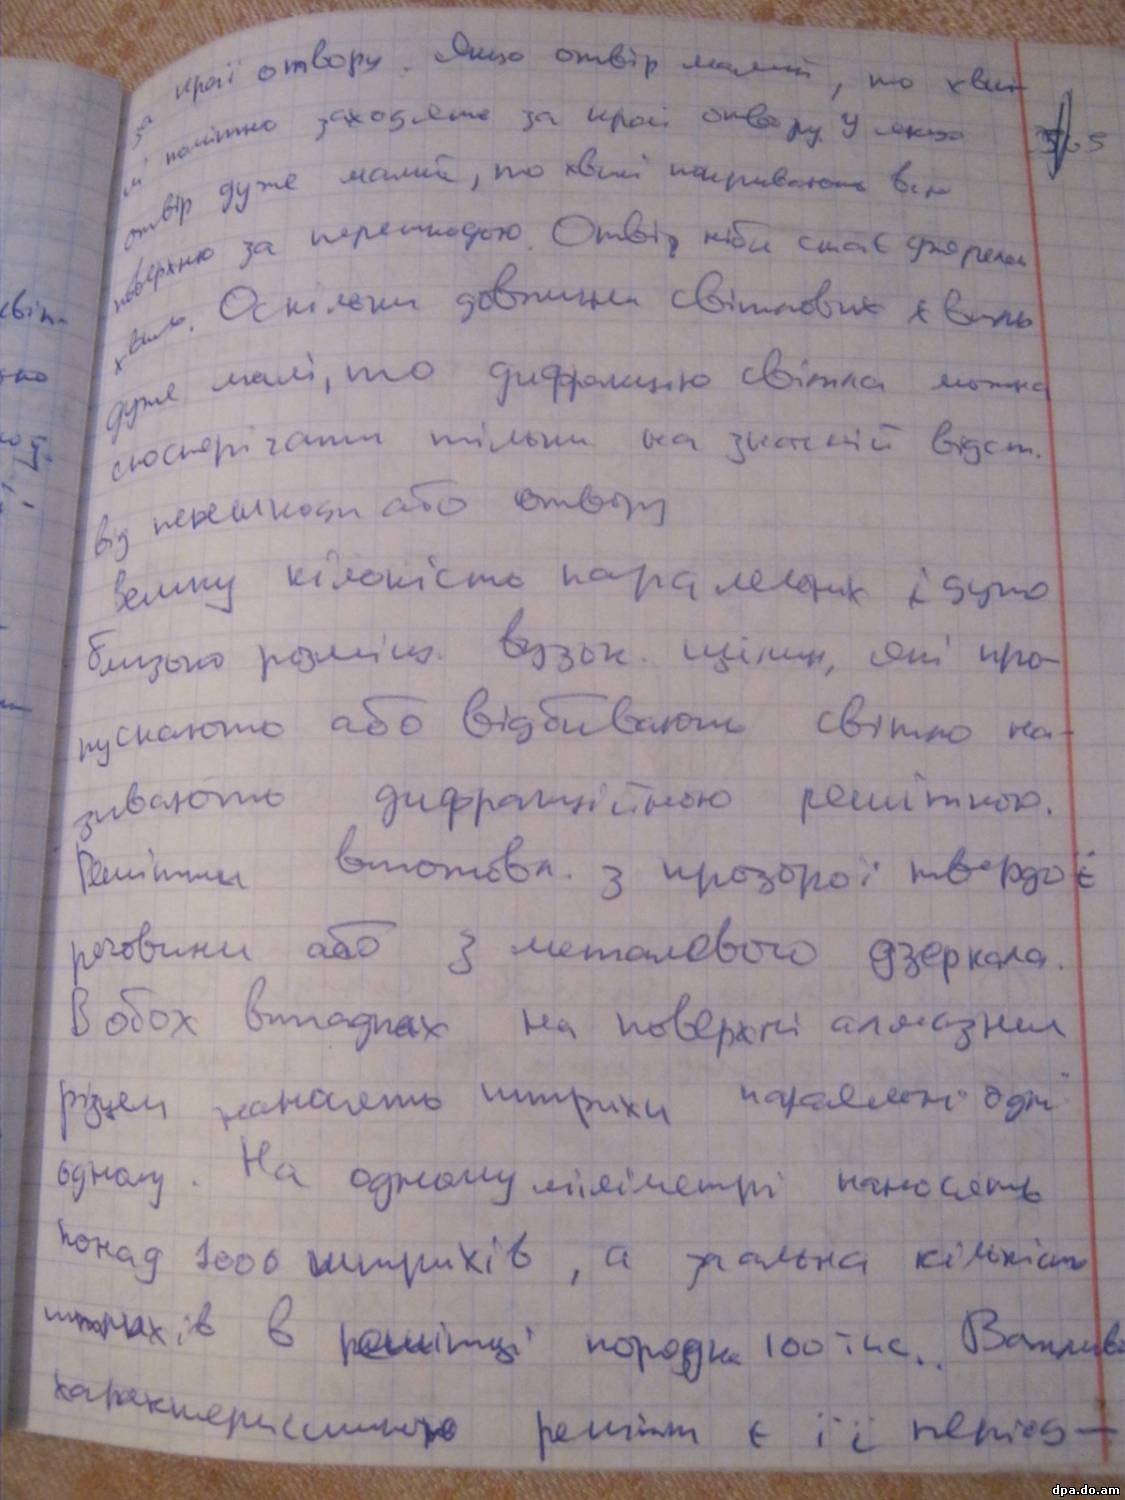 за краї отвору. Якщо отвір малий, то хви-
лі помітно заходять за краї отвору. У якщо
отвір дуже малий, то хвилі покривають всю
поверхню за перешкодою. Отвір ніби стає джерелом
хвиль. Оскільки довжини світлових хвиль
дуже малі, то дифракцію світла можна
спостерігати тільки на значній відст.
від перешкоди або отвору
Велику кількість паралельних і дуже
близько розміщ. вузьк. щілин, які про-
пускають або відбивають світло на-
зивають дифракційною решіткою.
Решітки виготовл. з прозорої твердої
речовини або з металевого дзеркала.
В обох випадках на поверхні алмазним
різцем наносять штрихи паралельні одні
одному. На одному міліметрі наносять
понад 1000 штрихів, а загальна кількість
штрихів в решітці порядка 100 тис.. Важлива
характеристикою решітки є її період -
світ-
dpa.do.am